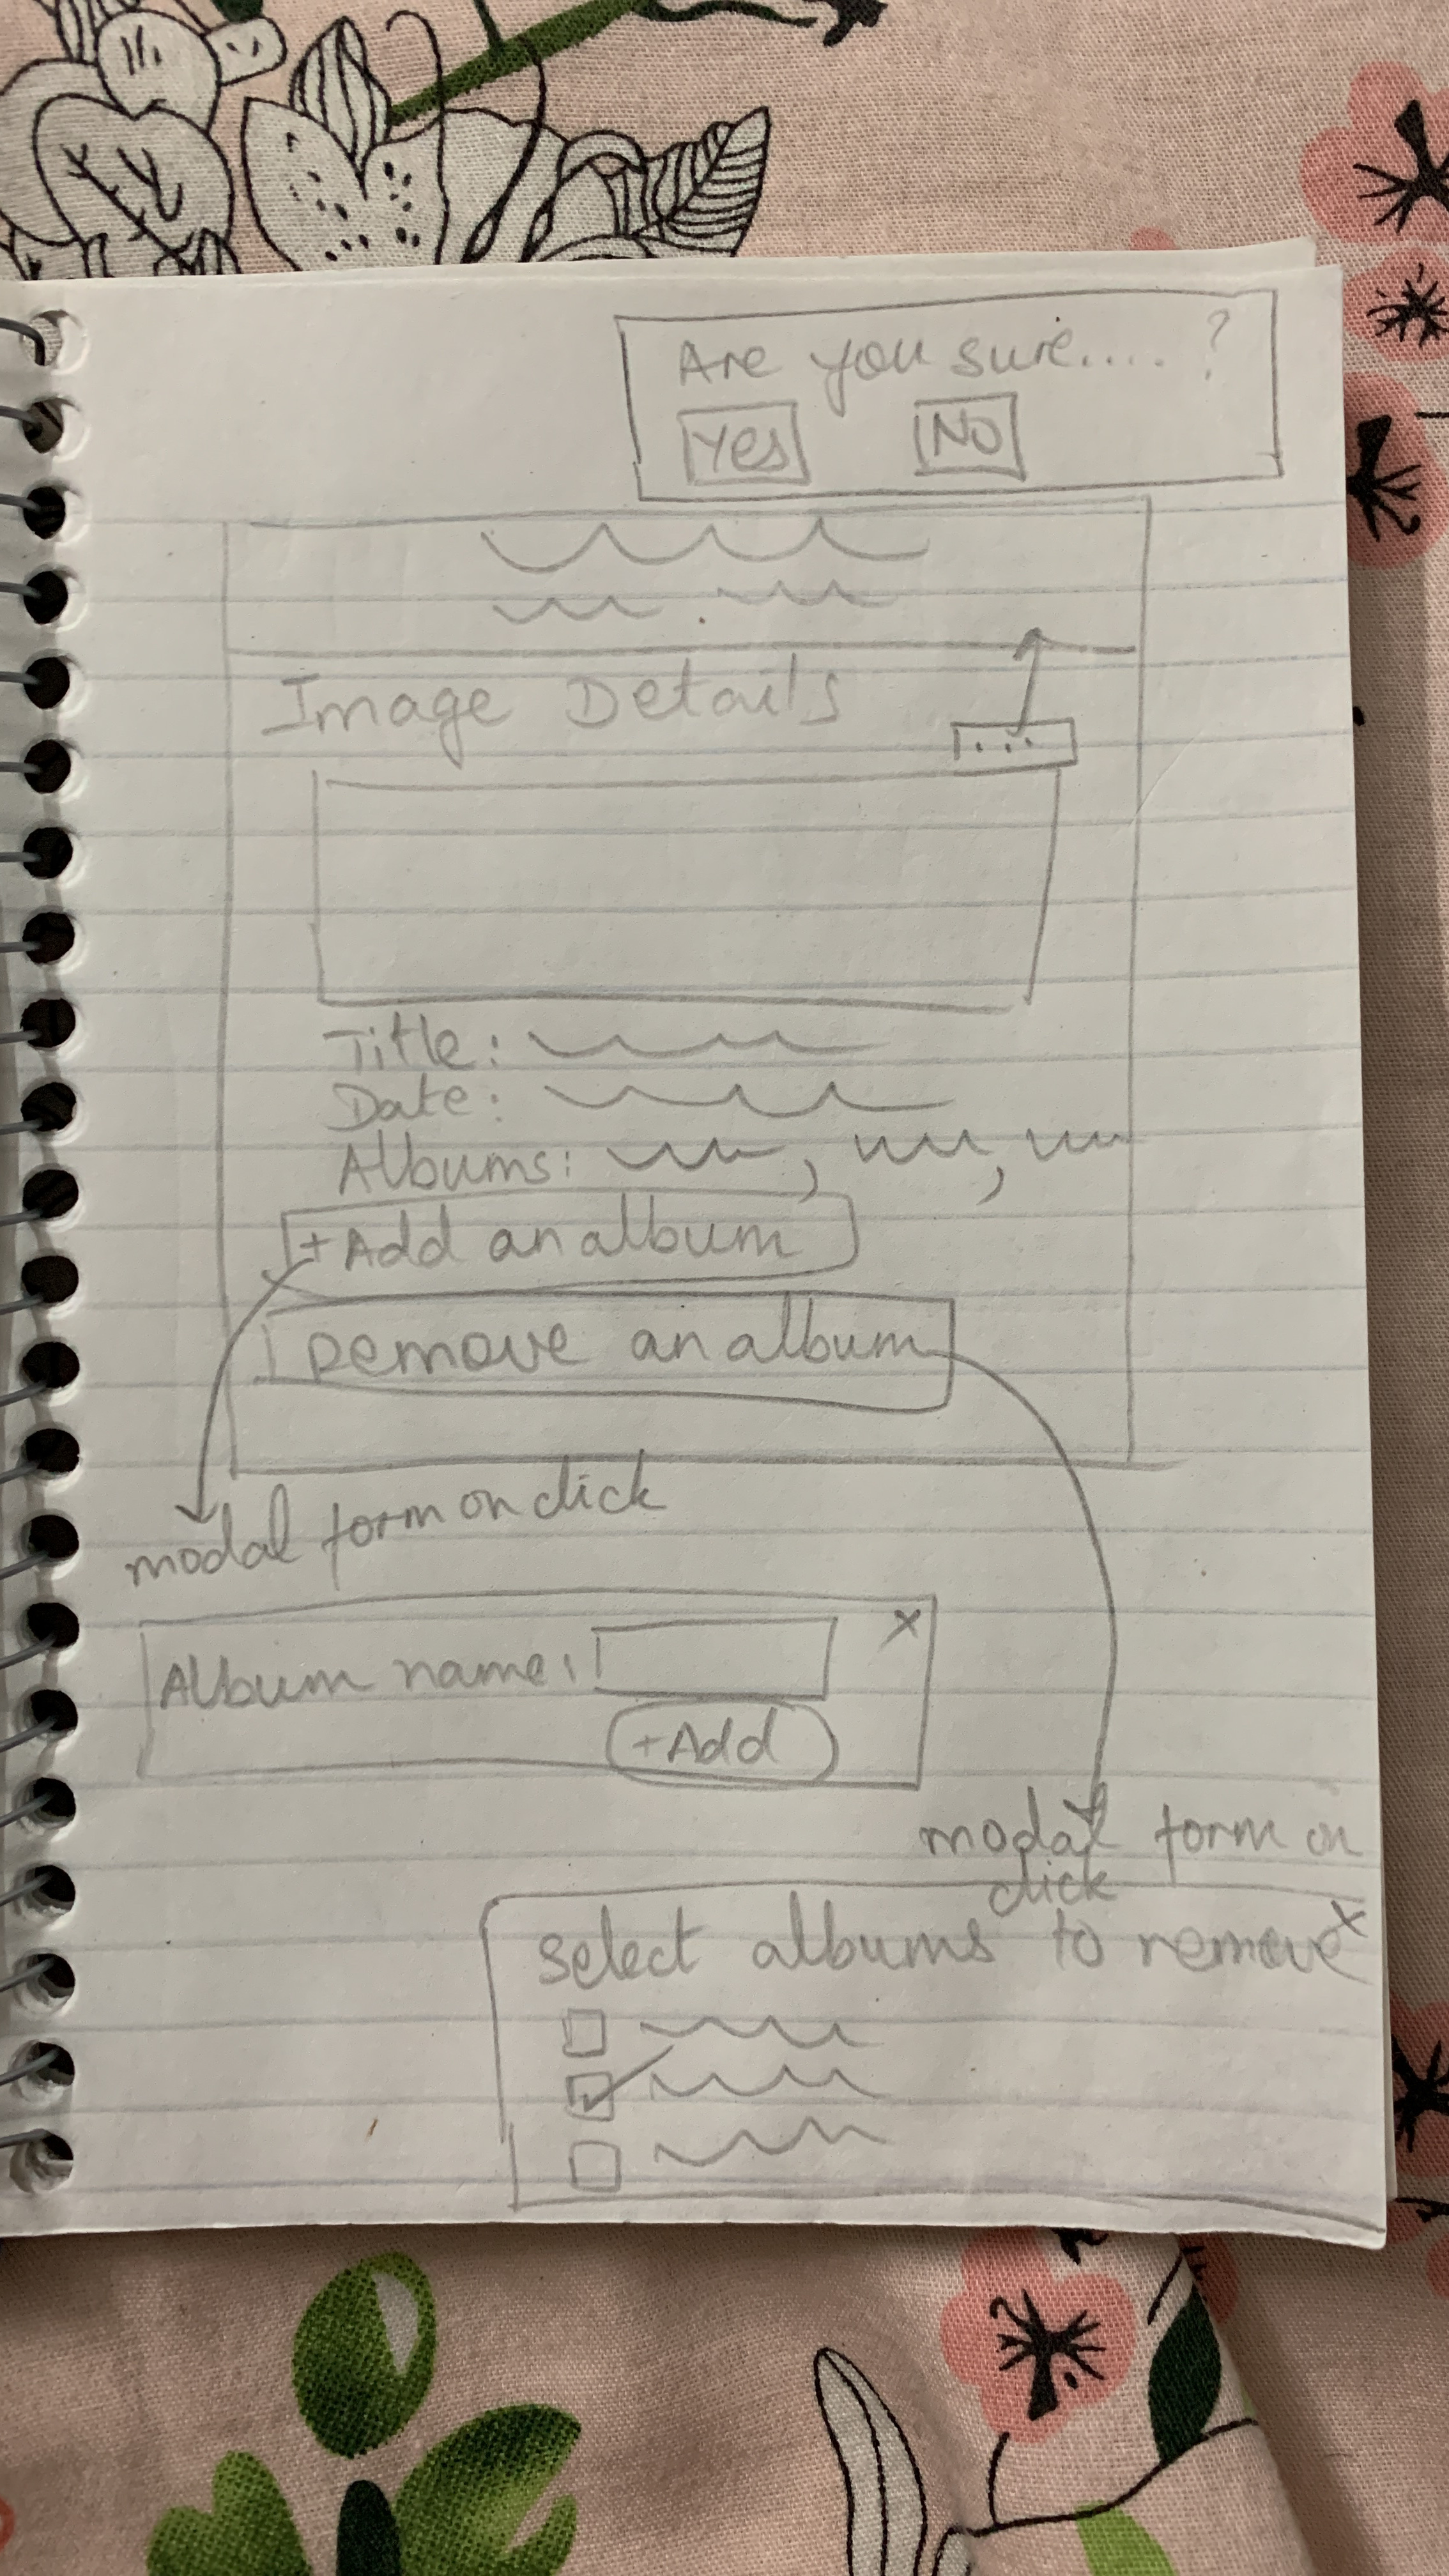 Are you sure.....?
Yes No
Image Details
...
Title:
Date:
Albums: , ,
+Add an album
Remove an album
modal form on click
Album name: x
+Add
modal form on
click
x
Select albums to remove